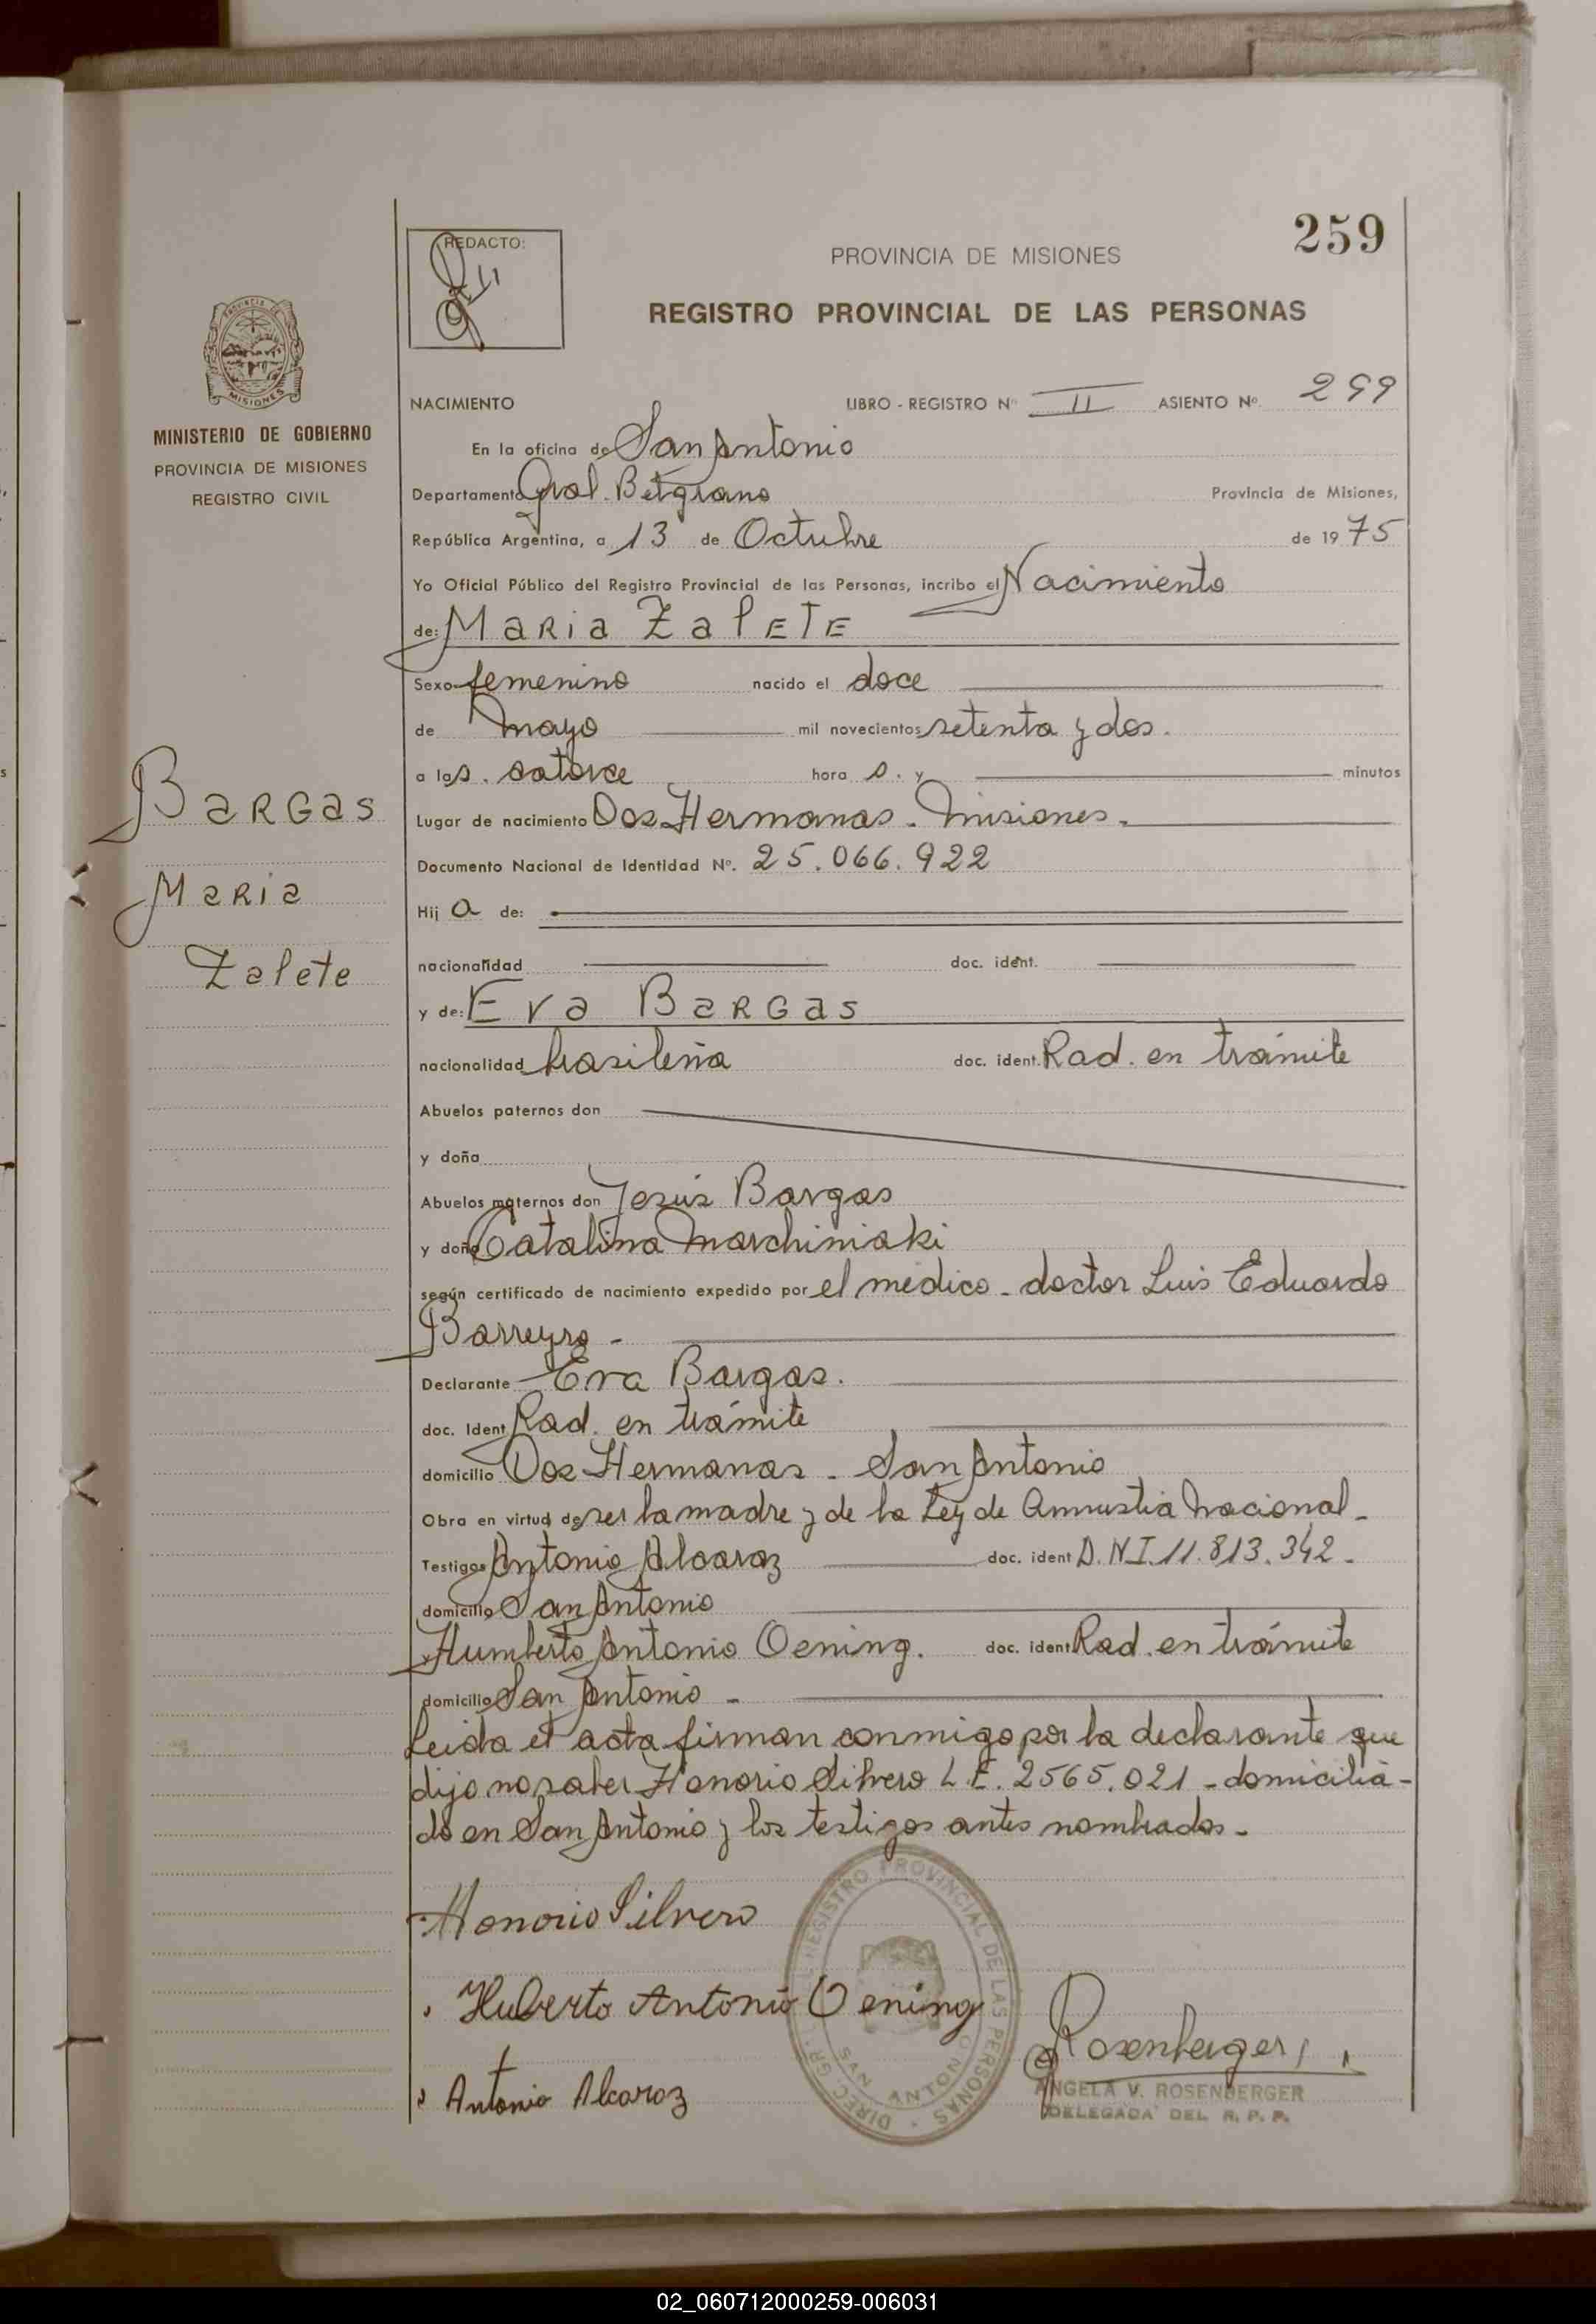 259
REDACTO:
PROVINCIA DE MISIONES
REGISTRO PROVINCIAL DE LAS PERSONAS
MISIONES
MINISTERIO DE GOBIERNO
PROVINCIA DE MISIONES
REGISTRO CIVIL
NACIMIENTO LIBRO - REGISTRO Nº II ASIENTO Nº 299
En la oficina de San Antonio
Departamento Gral. Belgrano Provincia de Misiones,
República Argentina, a 13 de Octubre de 1975
Yo Oficial Público del Registro Provincial de las Personas, incribo el Nacimiento
de: MaRia ZalETE
Sexo femenino nacido el doce
de mayo mil novecientos setenta y dos.
a las. catorce hora s. y minutos
BaRGas
Lugar de nacimiento Dos Hermanas - Misiones.
Documento Nacional de Identidad Nº. 25.066.922
MaRia
Hij a de:
Zalete
nacionalidad doc. ident.
y de: Eva BaRGas
nacionalidad brasileña doc. ident. Rad. en trámite
Abuelos paternos don
y doña
Abuelos maternos don Jesús Bargas
y doña Catalina Marchiniaki
según certificado de nacimiento expedido por el médico - doctor Luis Eduardo
Barreyro -
Declarante Eva Bargas.
doc. Ident Rad. en trámite
domicilio Dos Hermanas - San Antonio
Obra en virtud de ser la madre y de la Ley de Amnistia Nacional -
Testigos Antonio Alcaraz doc. ident D.N.I. 11.813.342 -
domicilio San Antonio
Humberto Antonio Oening. doc. ident Rad. en trámite
domicilio San Antonio -
Leida el acta firman conmigo por la declarante que
dijo no saber Honorio Silvero L.E. 2565.021 - domicilia-
do en San Antonio y los testigos antes nombrados -
Honorio Silvero
Huberto Antonio Oening
Antonio Alcaraz
DIREC. GR. REGISTRO PROVINCIAL DE LAS PERSONAS
SAN ANTONIO
Rosenberger
ANGELA V. ROSENBERGER
DELEGADA DEL R. P. P.
02_060712000259-006031